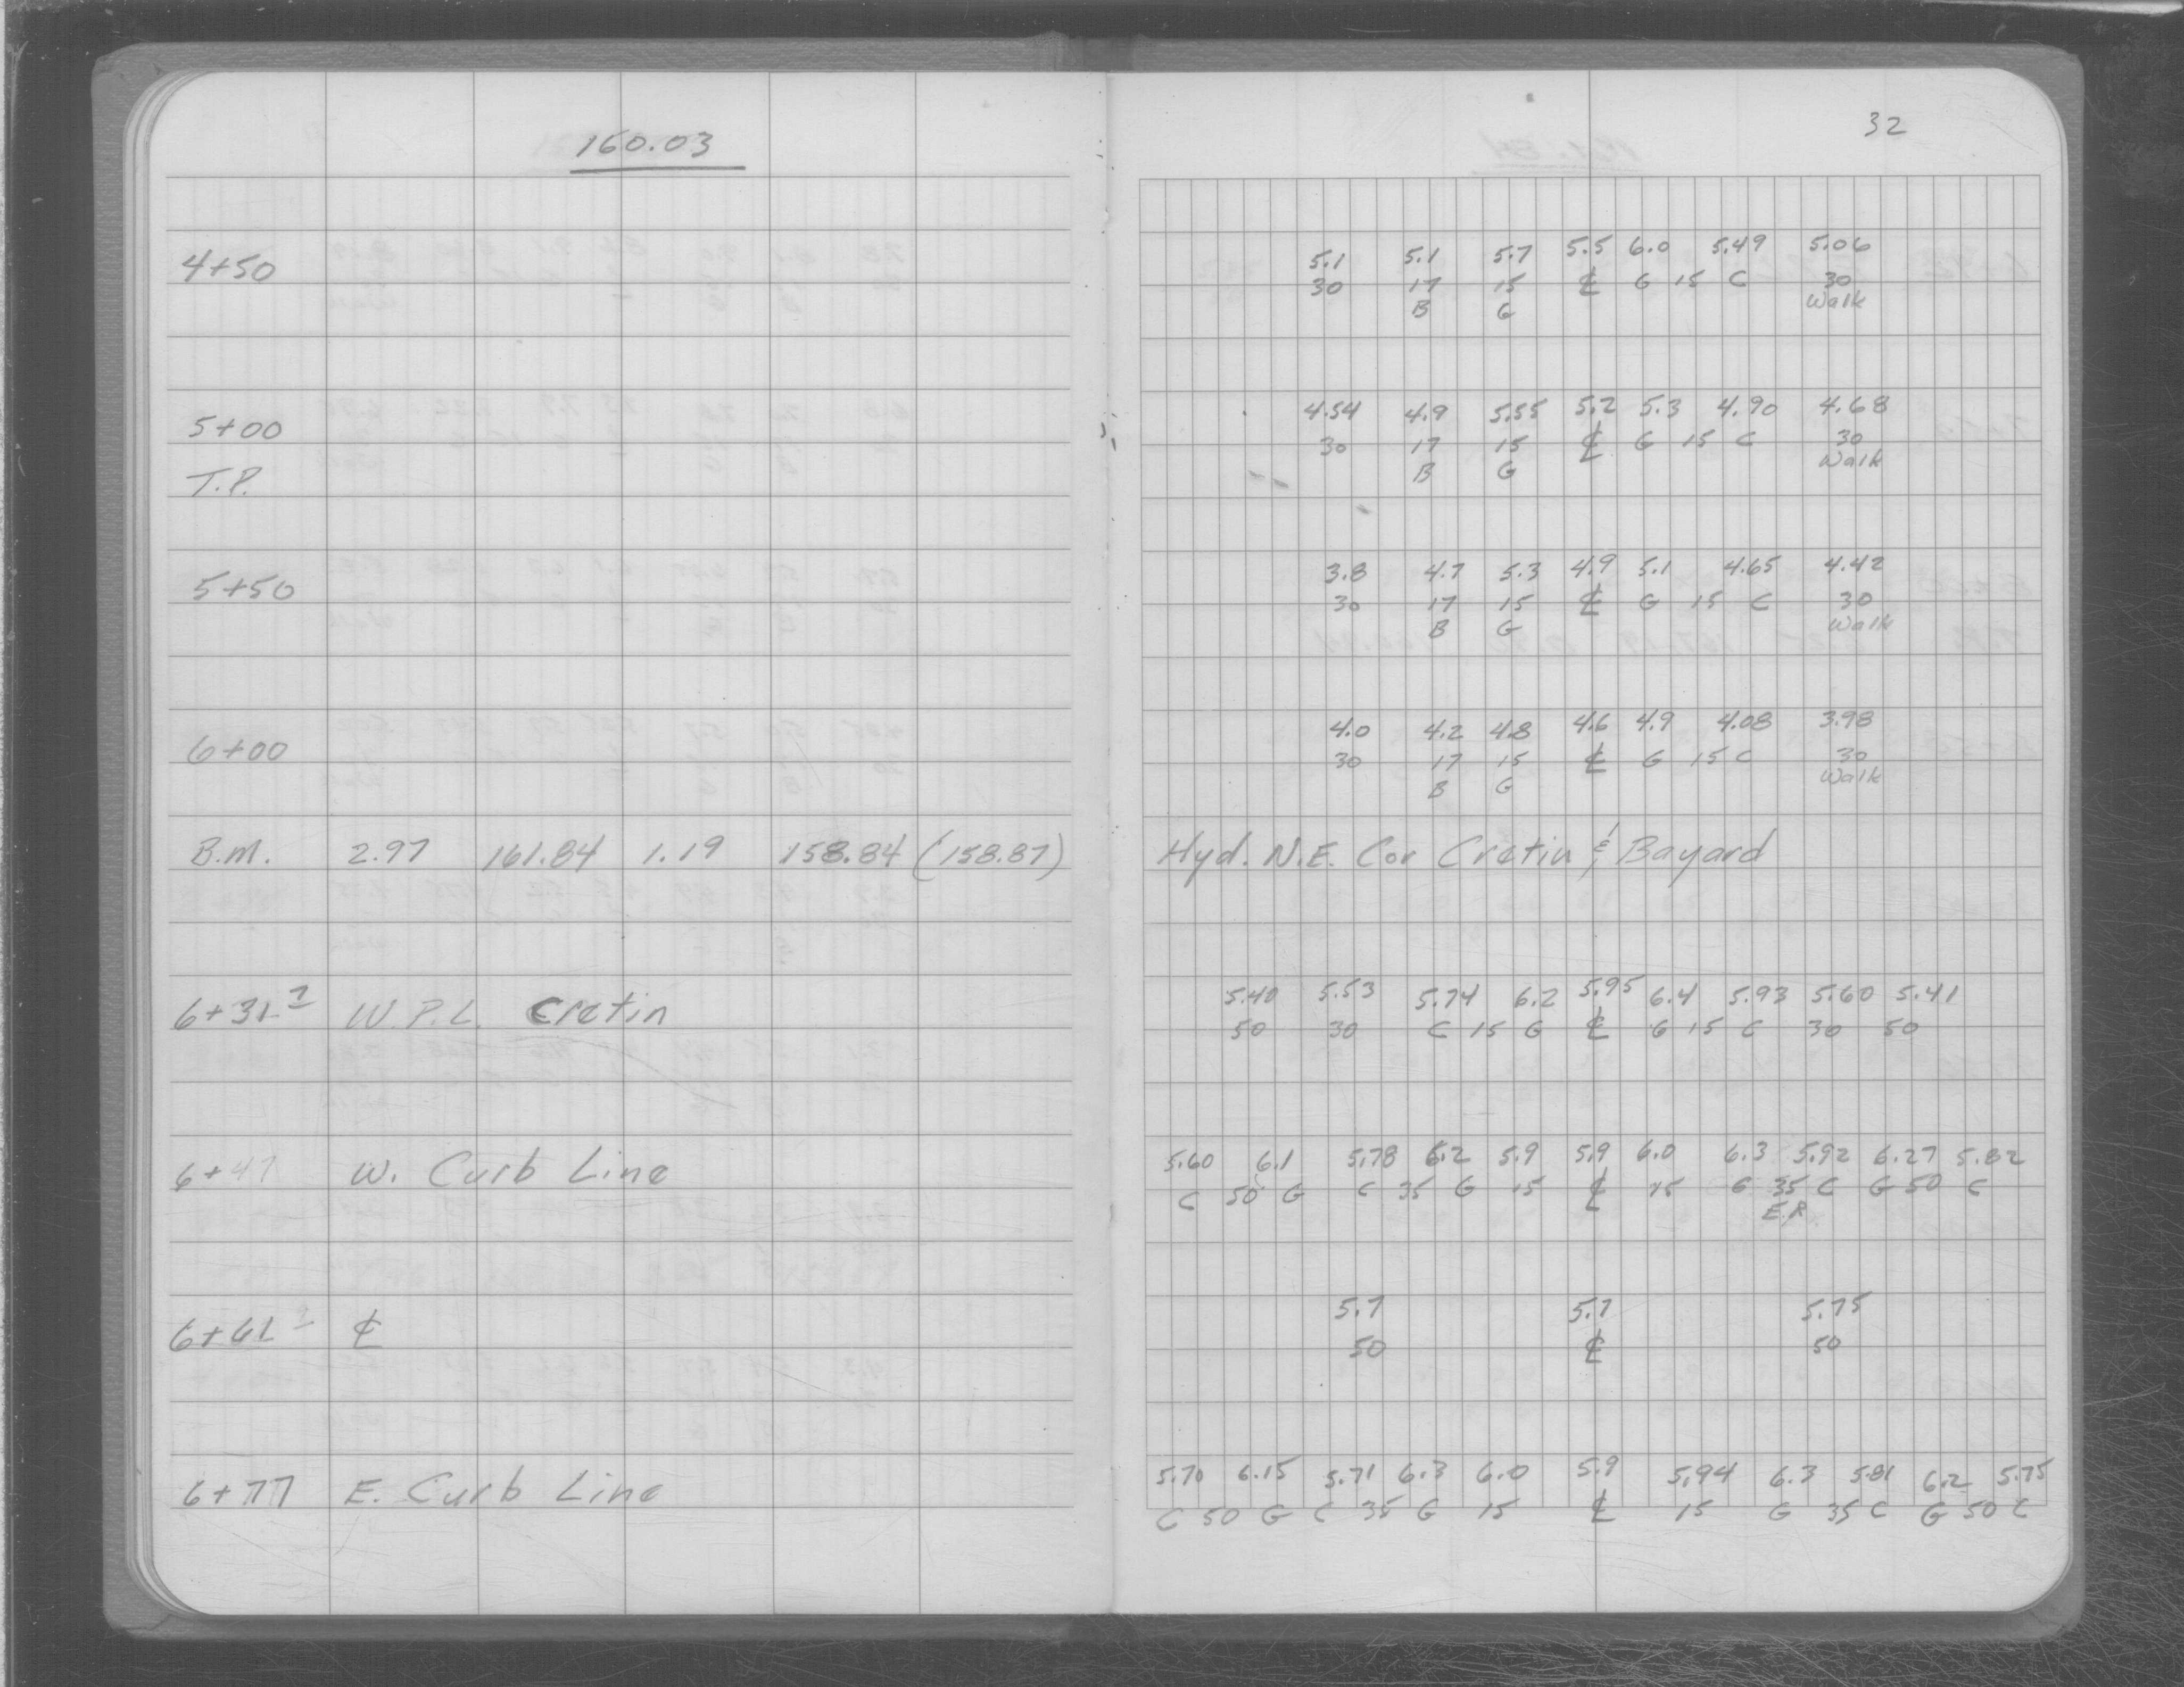 160.03
32
4+50 5.1 5.1 5.7 5.5 6.0 5.49 5.06
30 17 15 ℄ G 15 C 30
B G Walk
5+00 4.54 4.9 5.55 5.2 5.3 4.90 4.68
30 17 15 ℄ G 15 C 30
T.P. B G Walk
5+50 3.8 4.7 5.3 4.9 5.1 4.65 4.42
30 17 15 ℄ G 15 C 30
B G Walk
6+00 4.0 4.2 4.8 4.6 4.9 4.08 3.98
30 17 15 ℄ G 15 C 30
B G Walk
B.M. 2.97 161.84 1.19 158.84 (158.87) Hyd. N.E. Cor Cretin & Bayard
5.40 5.53 5.74 6.2 5.95 6.4 5.93 5.60 5.41
W.P.L. Cretin 50 30 C 15 G ℄ G 15 C 30 50
5.60 6.1 5.78 6.2 5.9 5.9 6.0 6.3 5.92 6.27 5.82
6+47 W. Curb Line C 50 G C 35 G 15 ℄ 15 G 35 C G 50 C
E.R.
5.7 5.7 5.75
℄ 50 ℄ 50
5.70 6.15 5.71 6.3 6.0 5.9 5.94 6.3 5.81 6.2 5.75
6+77 E. Curb Line C 50 G C 35 G 15 ℄ 15 G 35 C G 50 C